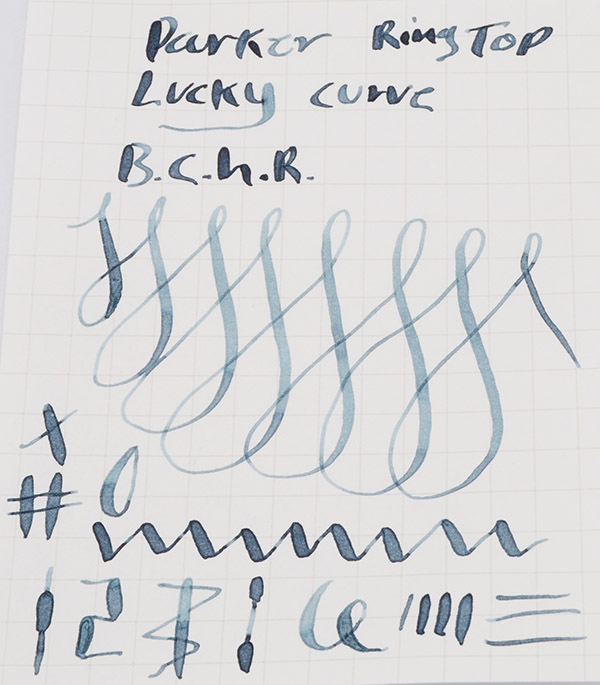 Parker Ring Top
Lucky Curve
B.C.H.R.